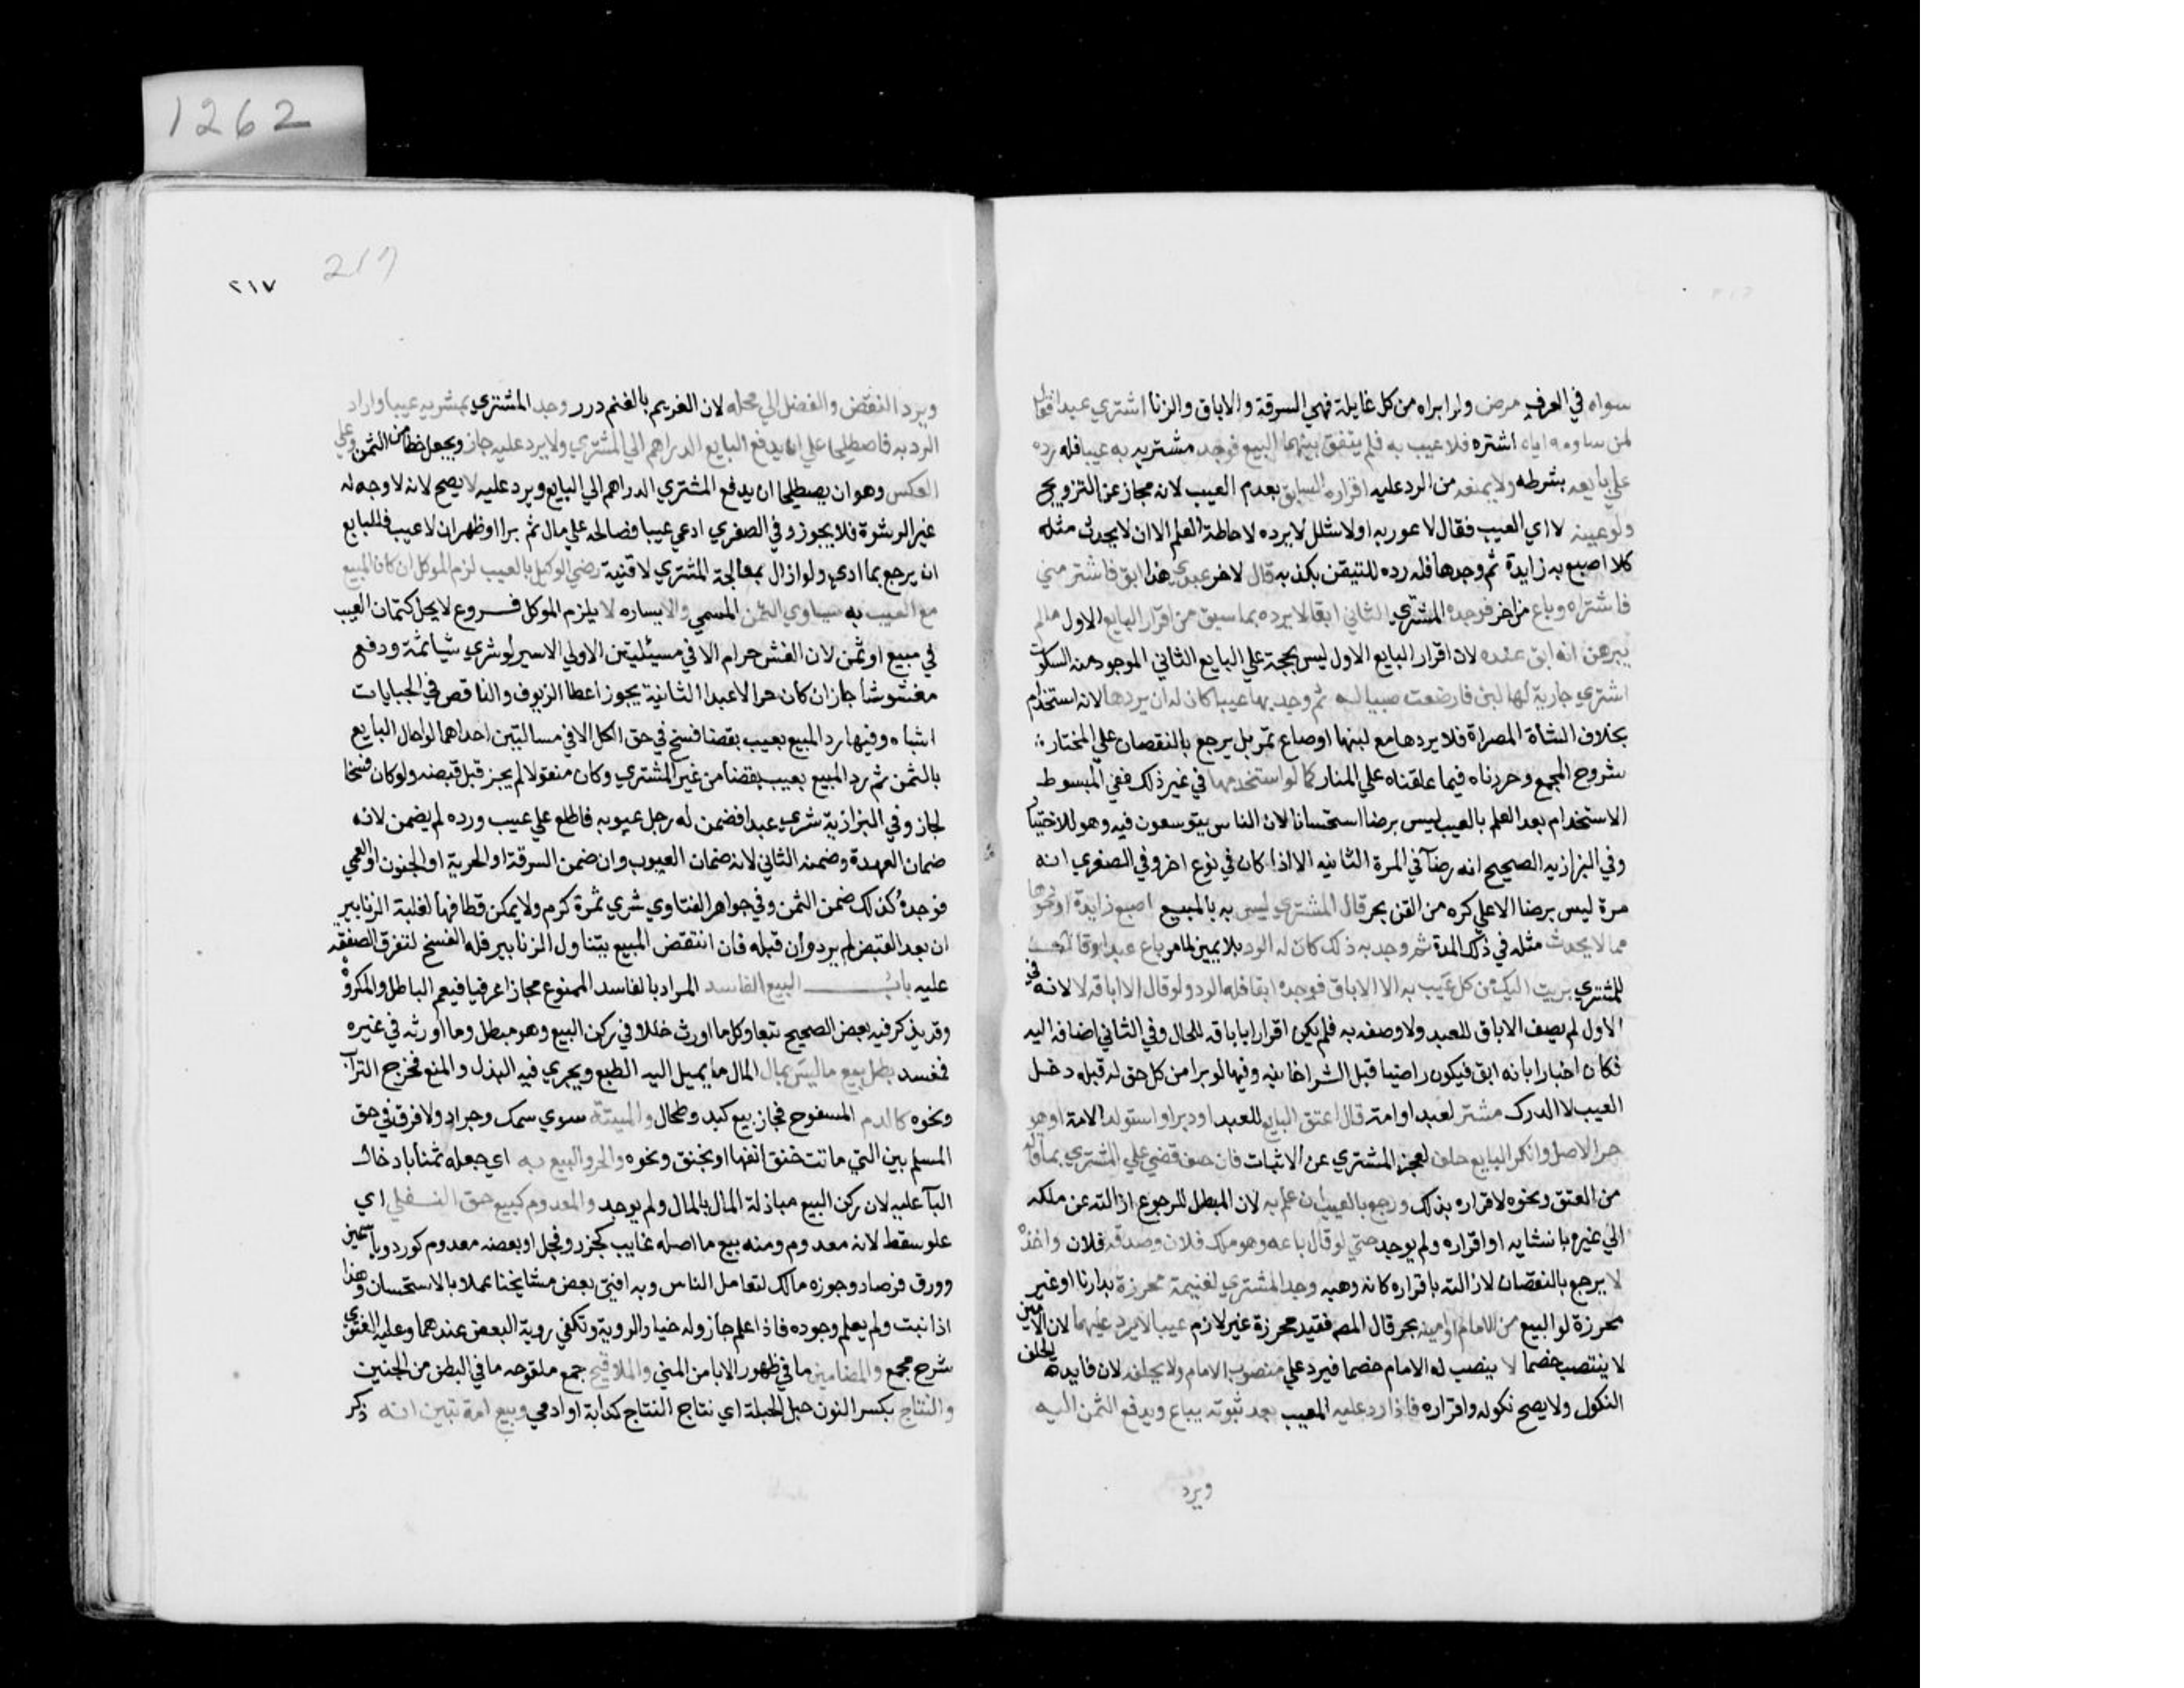 1262
سواه في العرف مرض ولو ابراه من كل غايلة فهي السرقة والاباق والزنا اشتري عبدا فقال
لمن ساومه اياه اشتره فلا عيب به فلم يتفق بينهما البيع فوجد مشتريه به عيبا فله رده
علي بايعه بشرطه ولا يمنعه من الرد عليه اقراره السابق بعدم العيب لانه مجاز عن الترويج
ولو عينه لا اي العيب فقال لا عور به او لا شلل لا يرده لاحاطة العلم الا ان لا يحدث مثله
كلا اصبع به زايدة ثم وجدها فله رده للتيقن بكذبه قال لاخر عبدي هذا ابق فاشتر مني
فاشتراه وباع من اخر فوجده المشتري الثاني ابقا لا يرده بما سبق من اقرار البايع الاول مالم
يبرهن انه ابق عنده لان اقرار البايع الاول ليس بحجة علي البايع الثاني الموجود منه السكوت
اشتري جارية لها لبن فارضعت صبيا له ثم وجد بها عيبا كان له ان يردها لانه استخدام
بخلاف الشاة المصراة فلا يردها مع لبنها او صاع تمر بل يرجع بالنقصان علي المختار
شروح المجمع وحررناه فيما علقناه علي المنار كما لو استخدمها في غير ذلك ففي المبسوط
الاستخدام بعد العلم بالعيب ليس برضا استحسانا لان الناس يتوسعون فيه وهو للاختيار
وفي البزازيه الصحيح انه رضآ في المرة الثانيه الا اذا كان في نوع اخر وفي الصغري انه
مرة ليس برضا الا علي كره من القن بحر قال المشتري ليس به بالمبيع اصبع زايدة او نحوها
مما لا يحدث مثله في ذلك المدة ثم وجد به ذلك كان له الرد بلا يمين لما مر باع عبدا وقال
للمشتري بريت اليك من كل عيب به الا الاباق فوجده ابقا فله الرد ولو قال الا اباقه لا لانه في
الاول لم يصف الاباق للعبد ولا وصفه به فلم يكن اقرارا باباقه للحال وفي الثاني اضافه اليه
فكان اخبارا بانه ابق فيكون راضيا قبل الشرا خانيه وفيها لو برا من كل حق له قبله دخل
العيب لا الدرك مشتر لعبد او امة قال اعتق البايع للعبد او دبر او استولد الامة او هو
حر الاصل وانكر البايع حلف لعجز المشتري عن الاثبات فان حلف قضي علي المشتري بما قاله
من العتق ونحوه لاقراره بذلك ورجع بالعيب ان علم به لان المبطل للرجوع ازالته عن ملكه
الي غيره بانشايه او اقراره ولم يوجد حتي لو قال باعه وهو ملك فلان وصدقه فلان واخذه
لا يرجع بالنقصان لازالته باقراره كانه وهبه وجد المشتري لغنيمة محرزة بدارنا او غير
محرزة لو البيع من الامام او امينه بحر قال المص فقيد محرزة غير لازم عيبا لا يرد عليهما لان الامين
لا ينتصب خصما لا ينصب له الامام خصما فيرد علي منصوب الامام ولا يحلفه لان فايدة الحلف
النكول ولا يصح نكوله واقراره فاذا رد عليه المعيب بعد ثبوته يباع ويدفع الثمن اليه
ويرد
217
٢١٧
ويرد النقض والفضل الي محله لان الغرم بالغنم درر وجد المشتري بمشريه عيبا واراد
الرد به فاصطلحا علي ان يدفع البايع الدراهم الي المشتري ولا يرد عليه جاز ويجعل حطا من الثمن وعلي
العكس وهو ان يصطلحا ان يدفع المشتري الدراهم الي البايع ويرد عليه لا يصح لانه لا وجه له
غير الرشوة فلا يجوز وفي الصغري ادعي عيبا فصالحه علي مال ثم برا او ظهر ان لا عيب فللبايع
ان يرجع بما ادي ولو ازال بمعالجة المشتري لا قنية رضي الوكيل بالعيب لزم الموكل ان كان المبيع
مع العيب به يساوي الثمن المسمي والا يساره لا يلزم الموكل فروع لا يحل كتمان العيب
في مبيع او ثمن لان الغش حرام الا في مسيئلتين الاولي الاسير لو شري شيا ثمة ودفع
مغشوشا جاز ان كان حرا لا عبدا الثانية يجوز اعطا الزيوف والناقص في الجبايات
اشباه وفيها رد المبيع بعيب بقضا فسخ في حق الكل الا في مسالتين احداهما لو احال البايع
بالثمن ثم رد المبيع بعيب بقضا من غير المشتري وكان منقولا لم يجز قبل قبضه ولو كان فسخا
لجاز وفي البزازية شري عبدا فضمن له رجل عيوبه فاطلع علي عيب ورده لم يضمن لانه
ضمان العهدة وضمنه الثاني لانه ضمان العيوب وان ضمن السرقة او الحرية او الجنون او العمي
فوجده كذلك ضمن الثمن وفي جواهر الفتاوي شري ثمرة كرم ولا يمكن قطافها لغلبة الزنابير
ان بعد القبض لم يرد وان قبله فان انتقض المبيع بتناول الزنابير فله الفسخ لتفرق الصفقه
عليه باب البيع الفاسد المراد بالفاسد الممنوع مجازا عرفيا فيعم الباطل والمكروه
وقد يذكر فيه بعض الصحيح تبعا وكل ما اورث خللا في ركن البيع وهو مبطل وما اورثه في غيره
فمفسد بطل بيع ما ليس بمال المال ما يميل اليه الطبع ويجري فيه البذل والمنع فخرج التراب
ونحوه كالدم المسفوح فجاز بيع كبد وطحال والميتة سوي سمك وجراد ولا فرق في حق
المسلم بين التي ماتت حتف انفها او بخنق ونحوه والحر والبيع به اي جعله ثمنا بادخال
البآ عليه لان ركن البيع مباذلة المال بالمال ولم يوجد والمعدوم كبيع حق التعلي اي
علو سقط لانه معدوم ومنه بيع ما اصله غايب كجزر وفجل او بعضه معدوم كورد وياسمين
وورق فرصاد وجوزه مالك لتعامل الناس وبه افتي بعض مشايخنا عملا بالاستحسان وهذا
اذا نبت ولم يعلم وجوده فاذا علم جاز وله خيار الروية وتكفي روية البعض عندهما وعليه الفتوي
شرح مجمع والمضامين ما في ظهور الابا من المني والملاقيح جمع ملقوحه ما في البطن من الجنين
والنتاج بكسر النون حبل الحبلة اي نتاج النتاج كدابة او ادمي وبيع امة تبين انه ذكر